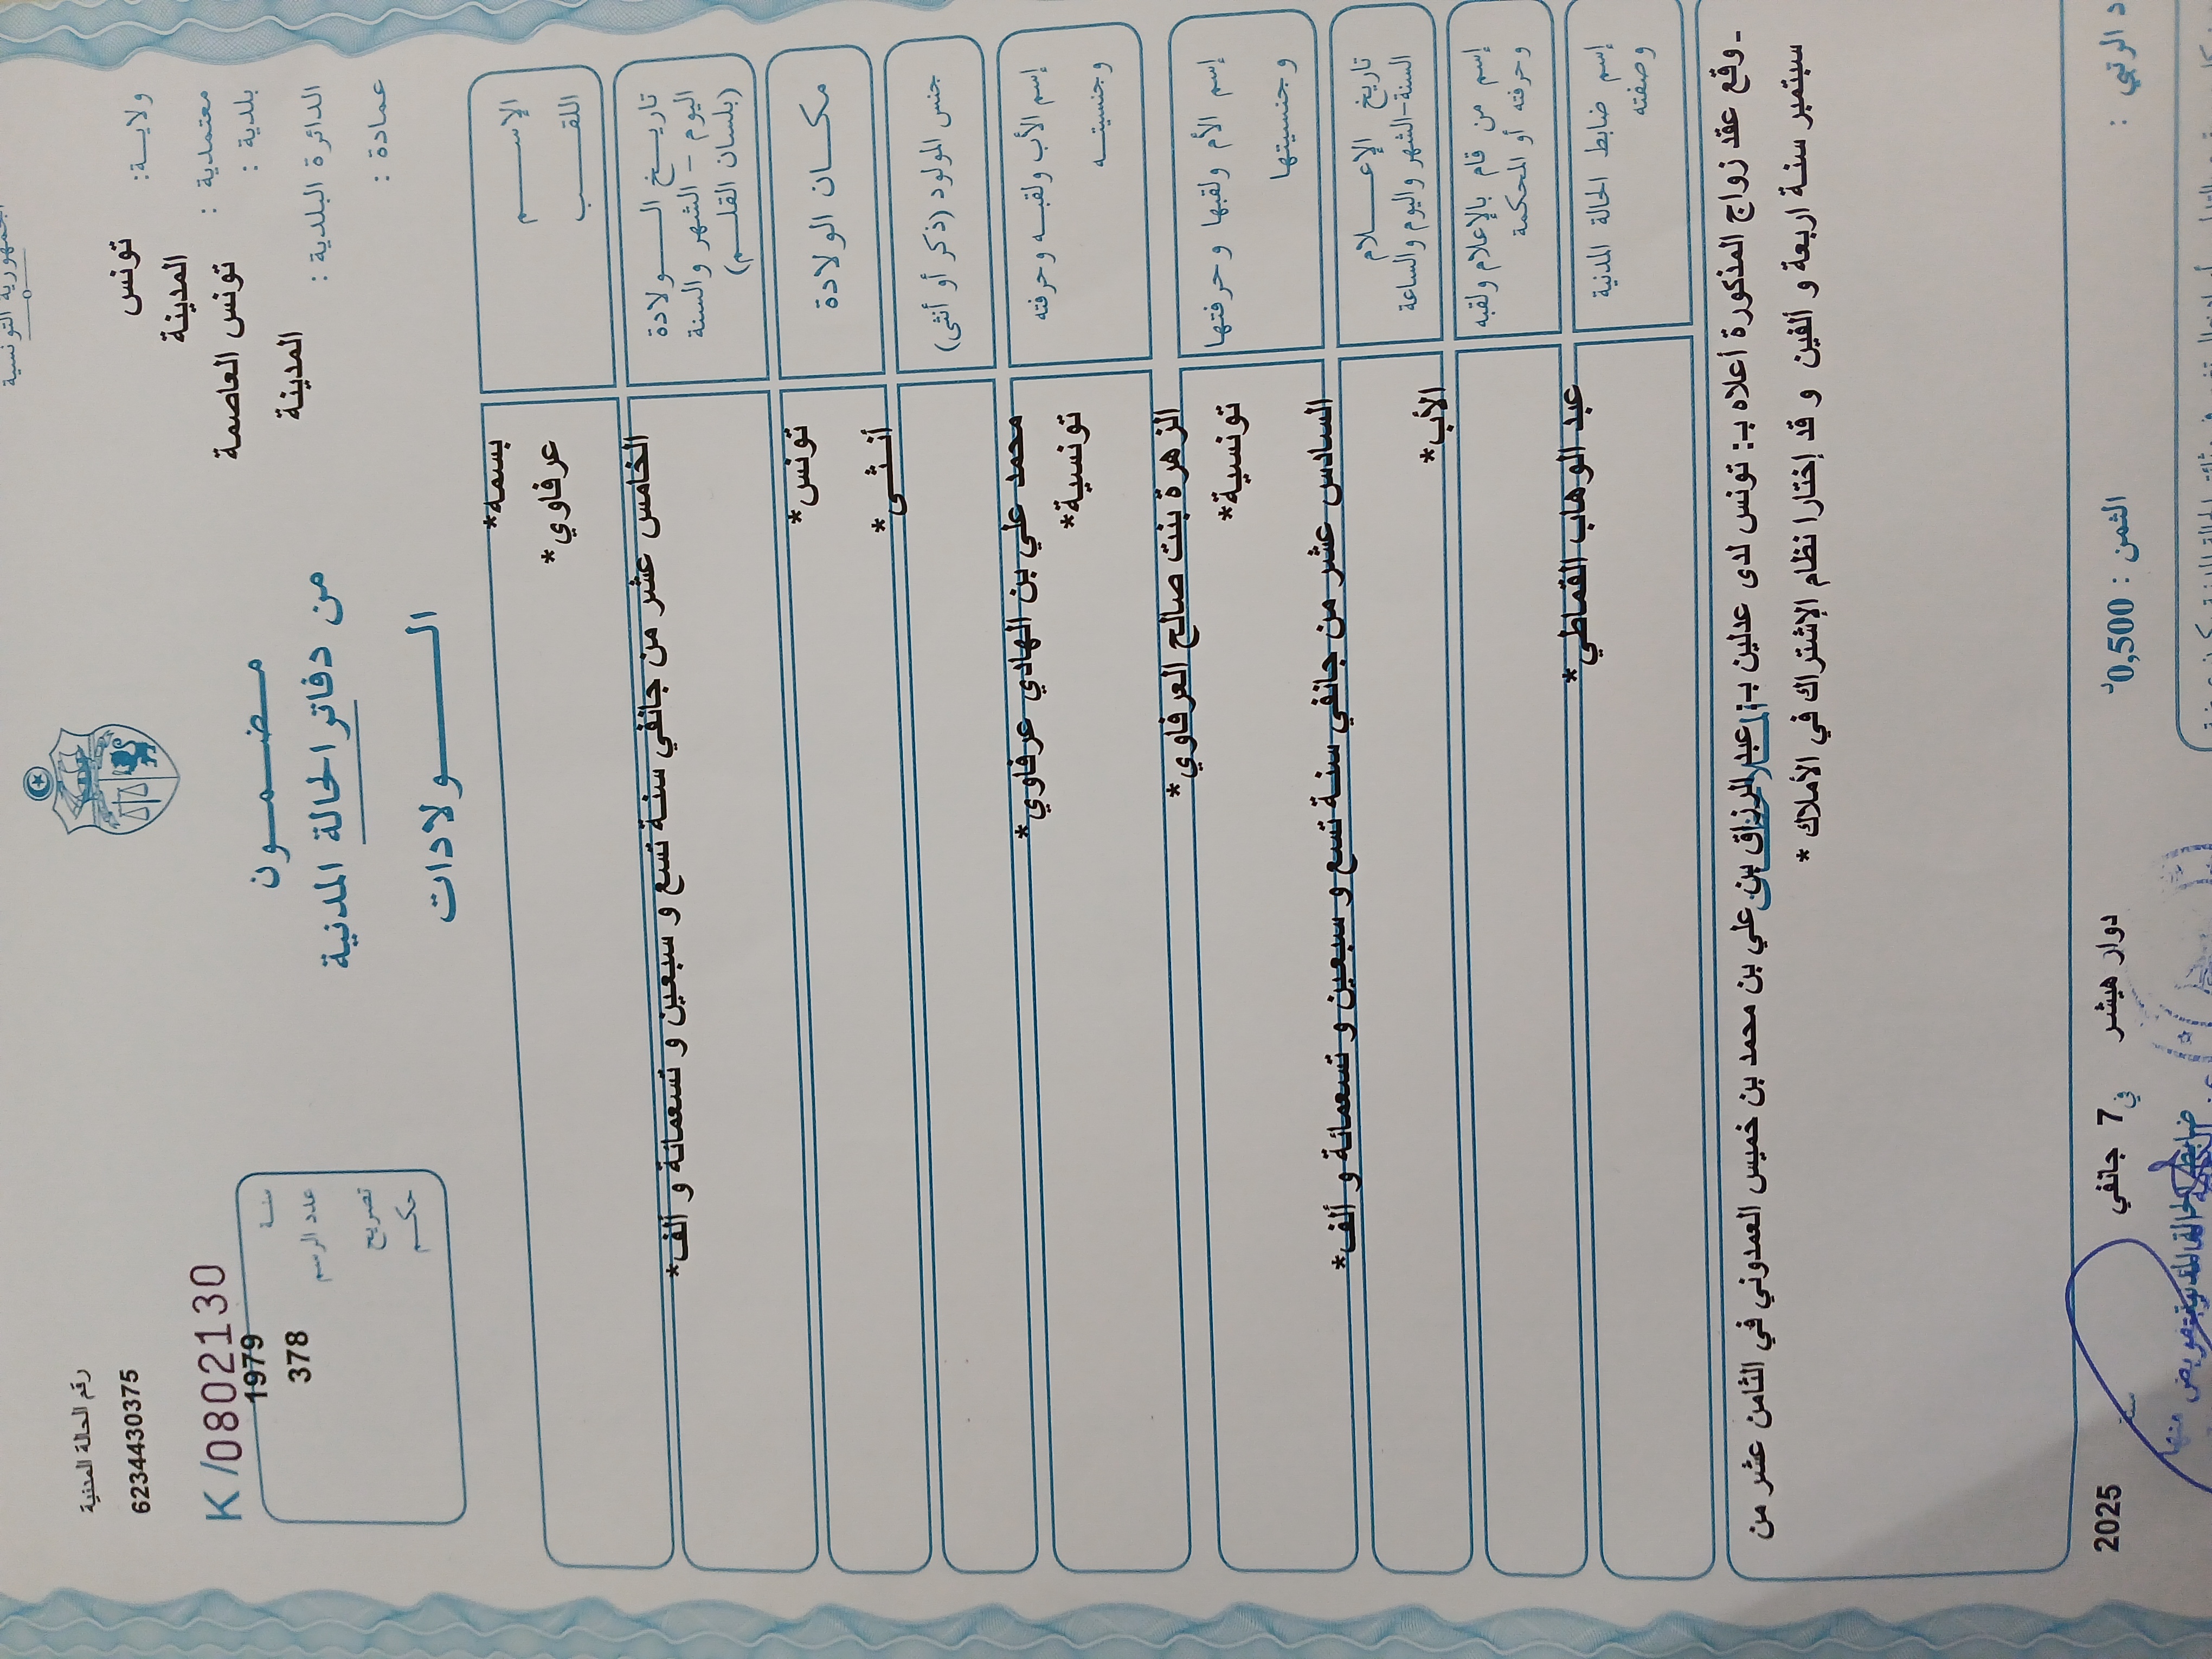 الجمهورية التونسية
ولايـــة: تونس
معتمدية : المدينة
بلدية : تونس العاصمة
الدائرة البلدية : المدينة
عمادة :
مـضـمـــون
من دفاتر الحالة المدنية
الـــــولادات
رقم الحالة المدنية
6234430375
K /0802130
سنـة 1979
عدد الرسم 378
تصريح
حكـم
الإســـم بسمه*
اللقـــب عرفاوي*
تاريـــخ الـــولادة
اليوم - الشهر والسنة
(بلسان القلـــم)
الخامس عشر من جانفي سنة تسع و سبعين و تسعمائة و ألف*
مكـــان الولادة تونس*
جنس المولود (ذكر أو أنثى) أنـثـى *
إسم الأب ولقبـه وحرفته محمد علي بن الهادي عرفاوي*
وجنسيتـــه تونسية*
إسم الأم ولقبها وحرفتها الزهرة بنت صالح العرفاوي*
وجنسيتها تونسية*
تاريخ الإعـــلام
السنة-الشهر واليوم والساعة
السادس عشر من جانفي سنة تسع و سبعين و تسعمائة و ألف*
إسم من قام بالإعلام ولقبه
وحرفته أو المحكمة
الأب*
إسم ضابط الحالة المدنية
وصفته
عبد الوهاب القماطي*
- وقع عقد زواج المذكورة أعلاه بـ: تونس لدى عدلين بـ عبد الرزاق بن علي بن محمد بن خميس العمدوني في الثامن عشر من
سبتمبر سنة اربعة و ألفين و قد إختارا نظام الإشتراك في الأملاك *
د الرتبي :
الثمن : 0,500
دوار هيشر في 7 جانفي سنة 2025
ضابط الحالة المدنية